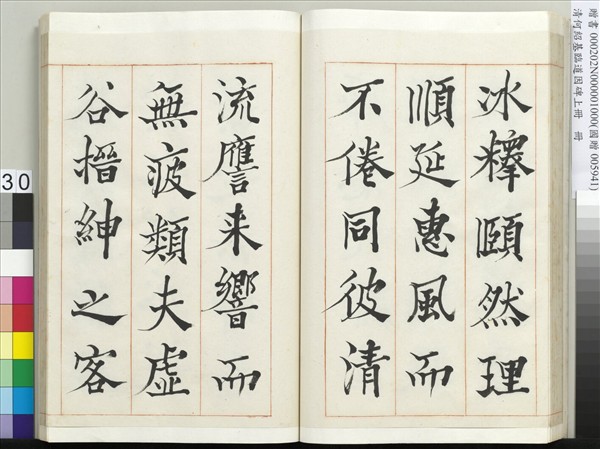 冰釋頤然理
順延惠風而
不倦同彼清
流譍来響而
無疲類夫虛
谷搢紳之客
贈書 000202N000001000(國贈 005941)
清何紹基臨道因碑上冊 冊
30